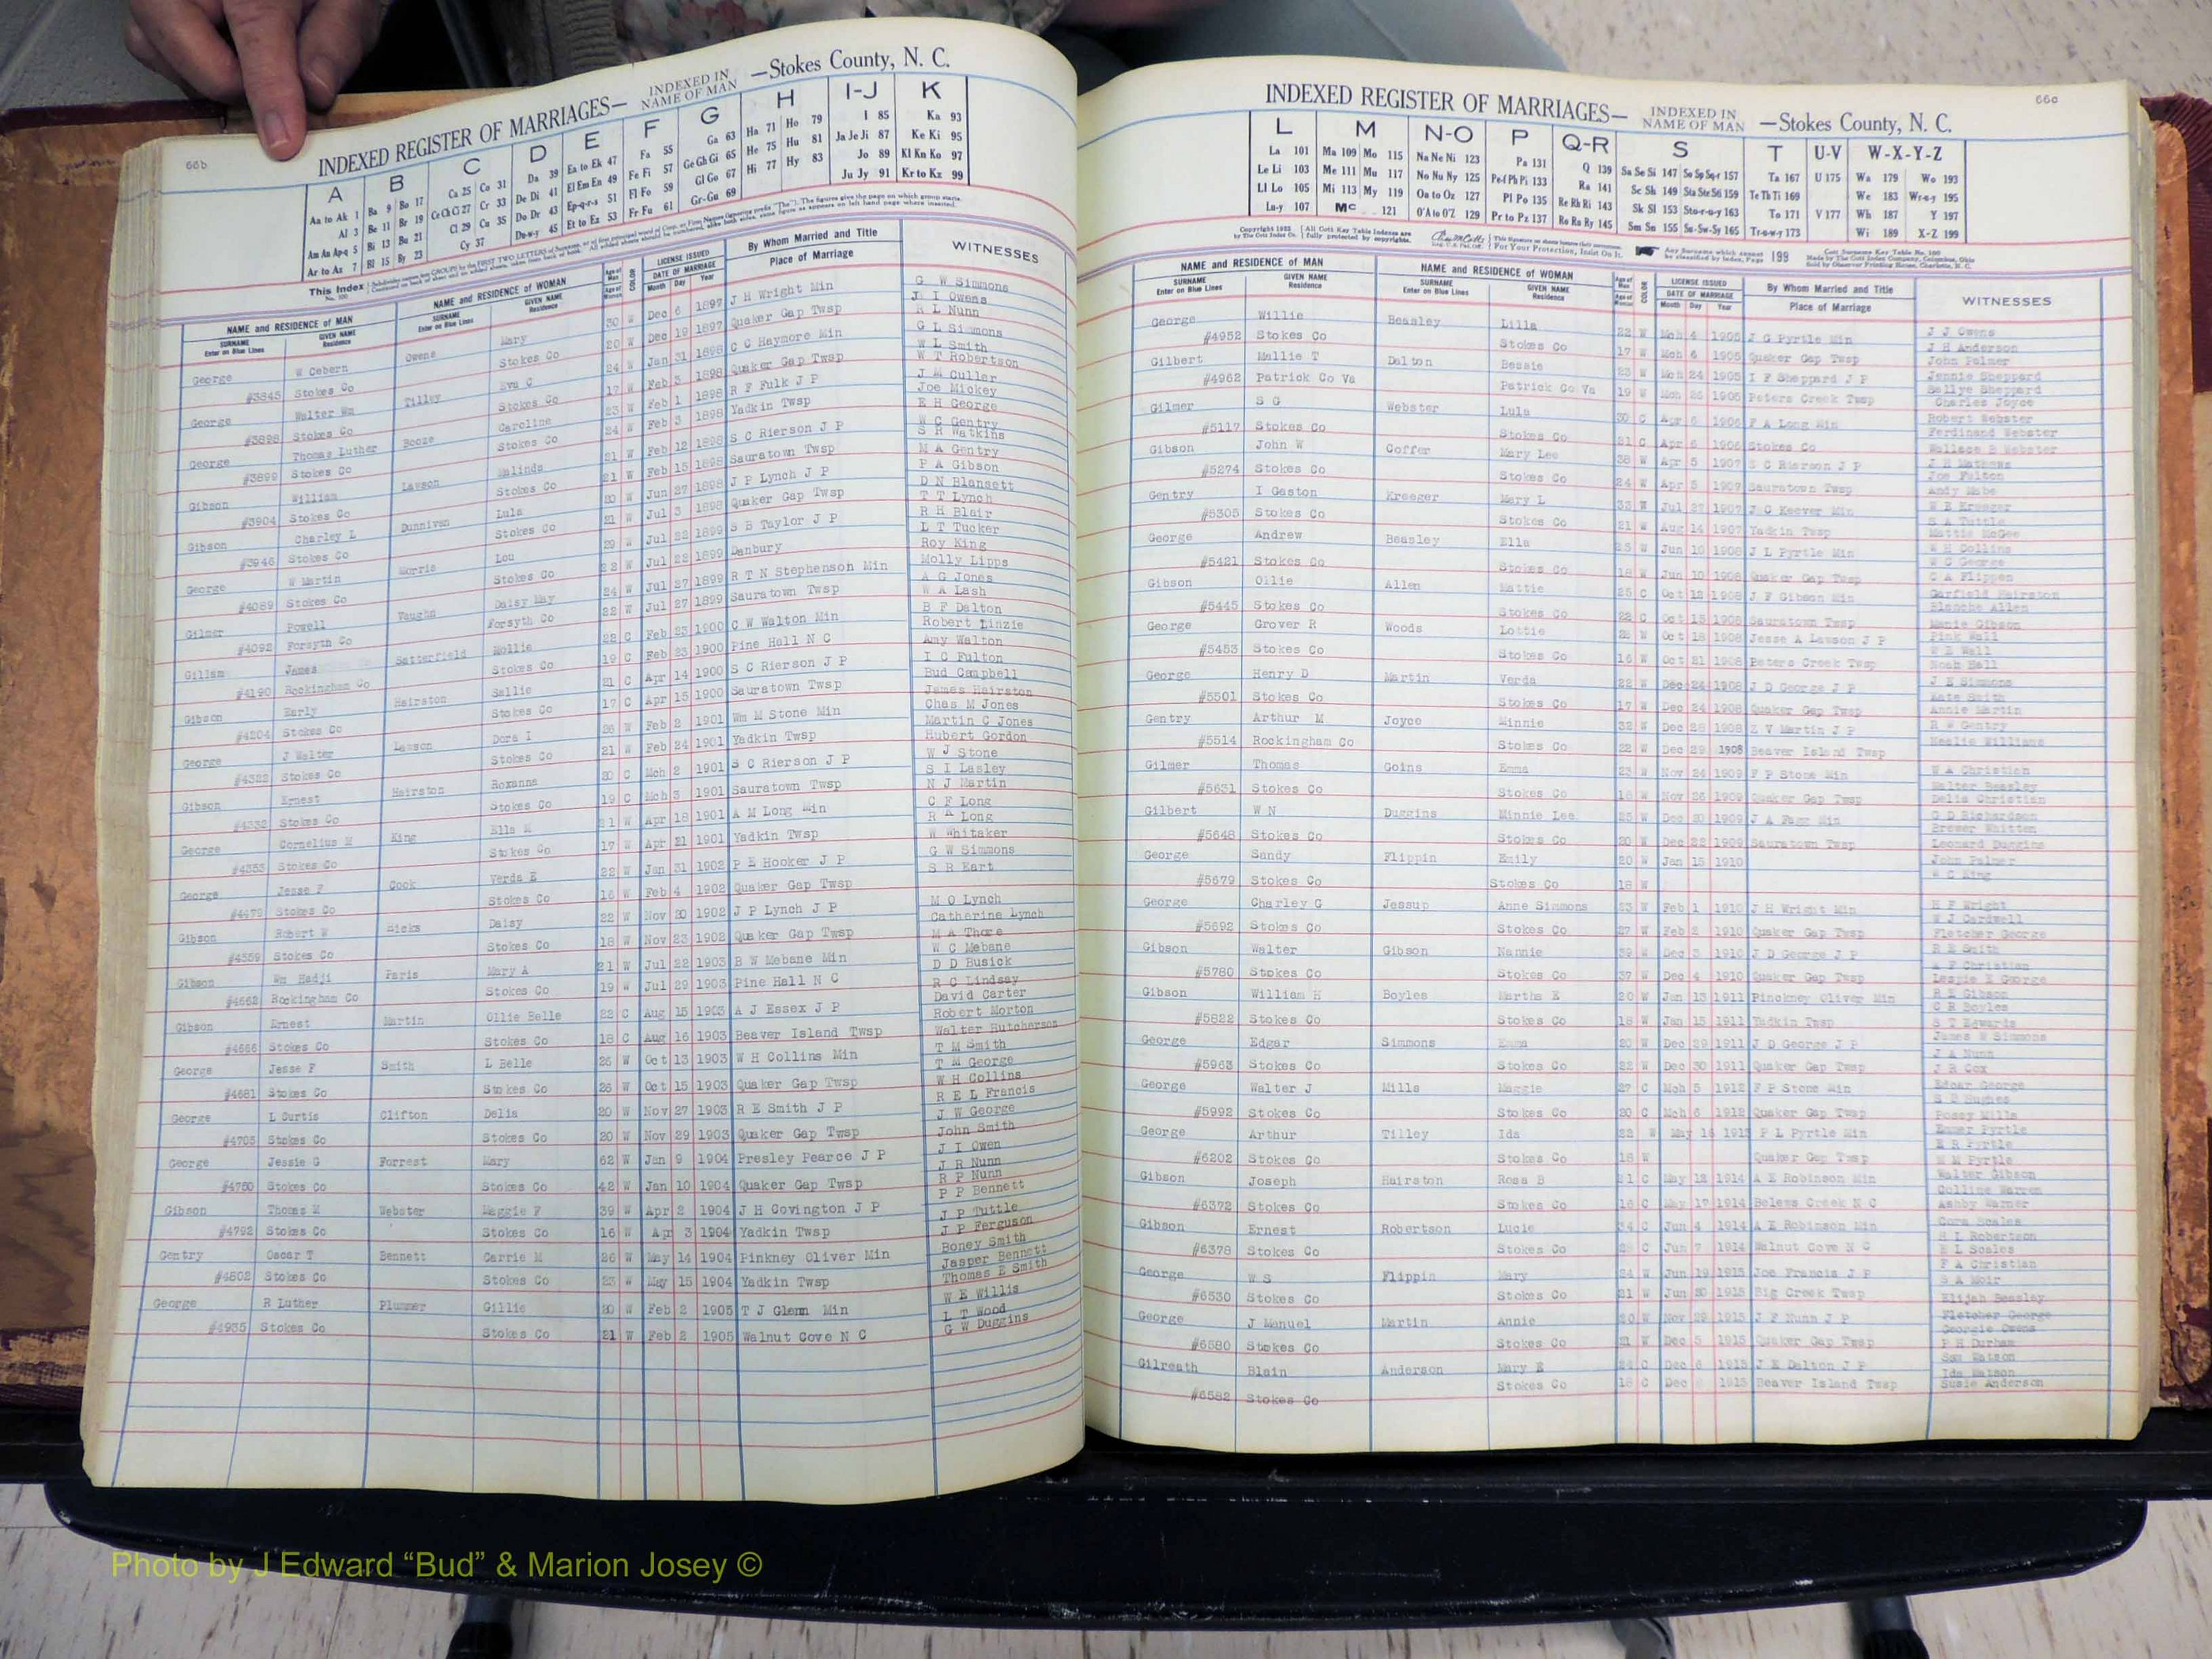 66b
INDEXED REGISTER OF MARRIAGES— INDEXED IN NAME OF MAN —Stokes County, N. C.
A B C D E F G H I-J K
Aa to Ak 1 Ba 9 Bo 17 Ca 25 Co 31 Da 39 Ea to Ek 47 Fa 55 Ga 63 Ha 71 Ho 79 I 85 Ka 93
Al 3 Be 11 Br 19 Ce Ch Ci 27 Cr 33 De Di 41 El Em En 49 Fe Fi 57 Ge Gh Gi 65 He 75 Hu 81 Ja Je Ji 87 Ke Ki 95
Am An Ap-q 5 Bi 13 Bu 21 Cl 29 Cu 35 Do Dr 43 Ep-q-r-s 51 Fl Fo 59 Gl Go 67 Hi 77 Hy 83 Jo 89 Kl Kn Ko 97
Ar to Az 7 Bl 15 By 23 Cy 37 Du-w-y 45 Et to Ez 53 Fr Fu 61 Gr-Gu 69 Ju Jy 91 Kr to Kz 99
NAME and RESIDENCE of MAN NAME and RESIDENCE of WOMAN COLOR LICENSE ISSUED By Whom Married and Title WITNESSES
SURNAME GIVEN NAME SURNAME GIVEN NAME DATE OF MARRIAGE Place of Marriage
Enter on Blue Lines Residence Enter on Blue Lines Residence Month Day Year
George W Cebern Owens Mary 30 W Dec 6 1897 J H Wright Min G W Simmons
#3845 Stokes Co Stokes Co 20 W Dec 19 1897 Quaker Gap Twsp J I Owens
R L Nunn
George Walter Wm Tilley Eva C 24 W Jan 31 1898 C C Haymore Min G L Simmons
#3898 Stokes Co Stokes Co 17 W Feb 3 1898 Quaker Gap Twsp W L Smith
W T Robertson
George Thomas Luther Booze Caroline 23 W Feb 1 1898 R F Fulk J P J M Culler
#3899 Stokes Co Stokes Co 24 W Feb 3 1898 Yadkin Twsp Joe Mickey
E H George
Gibson William Lawson Malinda 21 W Feb 12 1898 S C Rierson J P W C Gentry
#3904 Stokes Co Stokes Co 21 W Feb 15 1898 Sauratown Twsp S H Watkins
M A Gentry
Gibson Charley L Dunnivan Lula 20 W Jun 27 1898 J P Lynch J P P A Gibson
#3946 Stokes Co Stokes Co 21 W Jul 3 1898 Quaker Gap Twsp D N Blansett
T T Lynch
George W Martin Morris Lou 29 W Jul 22 1899 S B Taylor J P R H Blair
#4089 Stokes Co Stokes Co 23 W Jul 22 1899 Danbury L T Tucker
Roy King
Gilmer Powell Vaughn Daisy May 24 W Jul 27 1899 R T N Stephenson Min Molly Lipps
#4092 Forsyth Co Forsyth Co 22 W Jul 27 1899 Sauratown Twsp A G Jones
W A Lash
Gillam James Satterfield Mollie 22 C Feb 23 1900 C W Walton Min B F Dalton
#4190 Rockingham Co Stokes Co 19 C Feb 23 1900 Pine Hall N C Robert Linzie
Amy Walton
Gibson Early Hairston Sallie 21 C Apr 14 1900 S C Rierson J P I C Fulton
#4204 Stokes Co Stokes Co 17 C Apr 15 1900 Sauratown Twsp Bud Campbell
James Hairston
George J Walter Lawson Dora I 26 W Feb 2 1901 Wm M Stone Min Chas M Jones
#4322 Stokes Co Stokes Co 21 W Feb 24 1901 Yadkin Twsp Martin C Jones
Hubert Gordon
Gibson Ernest Hairston Roxanna 20 C Mch 2 1901 S C Rierson J P W J Stone
#4332 Stokes Co Stokes Co 19 C Mch 3 1901 Sauratown Twsp S I Lasley
N J Martin
George Cornelius M King Ella M 21 W Apr 18 1901 A M Long Min C F Long
#4353 Stokes Co Stokes Co 17 W Apr 21 1901 Yadkin Twsp R A Long
W Whitaker
George Jesse F Cook Verda E 22 W Jan 31 1902 P E Hooker J P G W Simmons
#4479 Stokes Co Stokes Co 16 W Feb 4 1902 Quaker Gap Twsp S R Eart
Gibson Robert W Hicks Daisy 22 W Nov 20 1902 J P Lynch J P M O Lynch
#4559 Stokes Co Stokes Co 18 W Nov 23 1902 Quaker Gap Twsp Catherine Lynch
M A Thore
Gibson Wm Hadji Paris Mary A 21 W Jul 22 1903 B W Mebane Min W C Mebane
#4662 Rockingham Co Stokes Co 19 W Jul 29 1903 Pine Hall N C D D Busick
R C Lindsay
Gibson Ernest Martin Ollie Belle 22 C Aug 15 1903 A J Essex J P David Carter
#4666 Stokes Co Stokes Co 18 C Aug 16 1903 Beaver Island Twsp Robert Morton
Walter Hutcherson
George Jesse F Smith L Belle 25 W Oct 13 1903 W H Collins Min T M Smith
#4681 Stokes Co Stokes Co 26 W Oct 15 1903 Quaker Gap Twsp T M George
W H Collins
George L Curtis Clifton Delia 20 W Nov 27 1903 R E Smith J P R E L Francis
#4705 Stokes Co Stokes Co 20 W Nov 29 1903 Quaker Gap Twsp J W George
John Smith
George Jessie G Forrest Mary 62 W Jan 9 1904 Presley Pearce J P J I Owen
#4750 Stokes Co Stokes Co 42 W Jan 10 1904 Quaker Gap Twsp J R Nunn
R P Nunn
Gibson Thomas M Webster Maggie F 39 W Apr 2 1904 J H Covington J P P P Bennett
#4792 Stokes Co Stokes Co 16 W Apr 3 1904 Yadkin Twsp J P Tuttle
J P Ferguson
Gentry Oscar T Bennett Carrie M 26 W May 14 1904 Pinkney Oliver Min Boney Smith
#4802 Stokes Co Stokes Co 23 W May 15 1904 Yadkin Twsp Jasper Bennett
Thomas E Smith
George R Luther Plummer Gillie 20 W Feb 2 1905 T J Glenn Min W E Willis
#4935 Stokes Co Stokes Co 21 W Feb 2 1905 Walnut Cove N C L T Wood
G W Duggins
66c
INDEXED REGISTER OF MARRIAGES— INDEXED IN NAME OF MAN —Stokes County, N. C.
L M N-O P Q-R S T U-V W-X-Y-Z
La 101 Ma 109 Mo 115 Na Ne Ni 123 Pa 131 Q 139 Sa Se Si 147 So Sp Sq-r 157 Ta 167 U 175 Wa 179 Wo 193
Le Li 103 Me 111 Mu 117 No Nu Ny 125 Pe-f Ph Pi 133 Ra 141 Sc Sh 149 Sta Ste Sti 159 Te Th Ti 169 We 183 Wr-u-y 195
Ll Lo 105 Mi 113 My 119 Oa to Oz 127 Pl Po 135 Re Rh Ri 143 Sk Sl 153 Sto-r-u-y 163 To 171 V 177 Wh 187 Y 197
Lu-y 107 Mc 121 O'A to O'Z 129 Pr to Pz 137 Ro Ru Ry 145 Sm Sn 155 Su-Sw-Sy 165 Tr-u-w-y 173 Wi 189 X-Z 199
NAME and RESIDENCE of MAN NAME and RESIDENCE of WOMAN COLOR LICENSE ISSUED By Whom Married and Title WITNESSES
SURNAME GIVEN NAME SURNAME GIVEN NAME DATE OF MARRIAGE Place of Marriage
Enter on Blue Lines Residence Enter on Blue Lines Residence Month Day Year
George Willie Beasley Lilla 22 W Mch 4 1905 J G Pyrtle Min J J Owens
#4952 Stokes Co Stokes Co 17 W Mch 6 1905 Quaker Gap Twsp J H Anderson
John Palmer
Gilbert Mallie T Dalton Bessie 23 W Mch 24 1905 I F Sheppard J P Jennie Sheppard
#4962 Patrick Co Va Patrick Co Va 19 W Mch 26 1905 Peters Creek Twsp Sallye Sheppard
Charles Joyce
Gilmer S G Webster Lula 30 C Apr 6 1906 F A Long Min Robert Webster
#5117 Stokes Co Stokes Co 21 C Apr 6 1906 Stokes Co Ferdinand Webster
Wallace B Webster
Gibson John W Coffer Mary Lee 38 W Apr 5 1907 S C Rierson J P J H Mathews
#5274 Stokes Co Stokes Co 24 W Apr 5 1907 Sauratown Twsp Joe Fulton
Andy Mabe
Gentry I Gaston Kreeger Mary L 33 W Jul 27 1907 J C Keever Min W E Kreeger
#5305 Stokes Co Stokes Co 21 W Aug 14 1907 Yadkin Twsp S A Tuttle
Mattie McGee
George Andrew Beasley Ella 25 W Jun 10 1908 J L Pyrtle Min W H Collins
#5421 Stokes Co Stokes Co 18 W Jun 10 1908 Quaker Gap Twsp W C George
C A Flippen
Gibson Ollie Allen Mattie 25 C Oct 12 1908 J F Gibson Min Garfield Hairston
#5445 Stokes Co Stokes Co 22 C Oct 15 1908 Sauratown Twsp Blanche Allen
Manie Gibson
George Grover R Woods Lottie W Oct 18 1908 Jesse A Lawson J P Pink Wall
#5453 Stokes Co Stokes Co 16 W Oct 21 1908 Peters Creek Twsp W E Wall
Noah Hall
George Henry D Martin Verda 22 W Dec 24 1908 J D George J P J E Simmons
#5501 Stokes Co Stokes Co 17 W Dec 24 1908 Quaker Gap Twsp Kate Smith
Annie Martin
Gentry Arthur M Joyce Minnie 32 W Dec 28 1908 Z V Martin J P R W Gentry
#5514 Rockingham Co Stokes Co 22 W Dec 29 1908 Beaver Island Twsp Neelie Williams
Gilmer Thomas Goins Emma 23 W Nov 24 1909 F P Stone Min W A Christian
#5631 Stokes Co Stokes Co 18 W Nov 26 1909 Quaker Gap Twsp Walter Beasley
Delia Christian
Gilbert W N Duggins Minnie Lee 25 W Dec 20 1909 J A Fagg Min O D Richardson
#5648 Stokes Co Stokes Co 20 W Dec 22 1909 Sauratown Twsp Brewer Whitten
Leonard Duggins
George Sandy Flippin Emily 20 W Jan 15 1910 John Palmer
#5679 Stokes Co Stokes Co 18 W W C King
George Charley G Jessup Anne Simmons 23 W Feb 1 1910 J H Wright Min H F Wright
#5692 Stokes Co Stokes Co 27 W Feb 2 1910 Quaker Gap Twsp W J Cardwell
Fletcher George
Gibson Walter Gibson Nannie 39 W Dec 3 1910 J D George J P R E Smith
#5780 Stokes Co Stokes Co 37 W Dec 4 1910 Quaker Gap Twsp F Christian
Lessie E George
Gibson William H Boyles Martha E 20 W Jan 13 1911 Pinckney Oliver Min R E Gibson
#5822 Stokes Co Stokes Co 18 W Jan 15 1911 Yadkin Twsp C R Boyles
S T Edwards
George Edgar Simmons Emma 20 W Dec 29 1911 J D George J P James W Simmons
#5963 Stokes Co Stokes Co 22 W Dec 30 1911 Quaker Gap Twsp J A Nunn
J R Cox
George Walter J Mills Maggie 27 C Mch 5 1912 F P Stone Min Edgar George
#5992 Stokes Co Stokes Co 20 C Mch 6 1912 Quaker Gap Twsp S P Hughes
Posey Mills
George Arthur Tilley Ida 22 W May 16 1913 P L Pyrtle Min Emmer Pyrtle
#6202 Stokes Co Stokes Co 18 W Quaker Gap Twsp E R Pyrtle
W M Pyrtle
Gibson Joseph Hairston Rosa B 21 C May 12 1914 A E Robinson Min Walter Gibson
#6372 Stokes Co Stokes Co 18 C May 17 1914 Belews Creek N C Colline Warren
Ashby Warner
Gibson Ernest Robertson Lucie 34 C Jun 4 1914 A E Robinson Min Cora Scales
#6378 Stokes Co Stokes Co C Jun 7 1914 Walnut Cove N C H L Robertson
H L Scales
George W S Flippin Mary 24 W Jun 19 1915 Joe Francis J P F A Christian
#6530 Stokes Co Stokes Co 21 W Jun 20 1915 Big Creek Twsp S A Moir
Elijah Beasley
George J Manuel Martin Annie 20 W Nov 29 1915 J F Nunn J P Fletcher George
#6580 Stokes Co Stokes Co 21 W Dec 5 1915 Quaker Gap Twsp Georgie Owens
P H Durham
Gilreath Blain Anderson Mary E 24 C Dec 6 1915 J E Dalton J P Sam Watson
#6582 Stokes Co Stokes Co 18 C Dec 1915 Beaver Island Twsp Ida Watson
Susie Anderson
Photo by J Edward “Bud” & Marion Josey ©